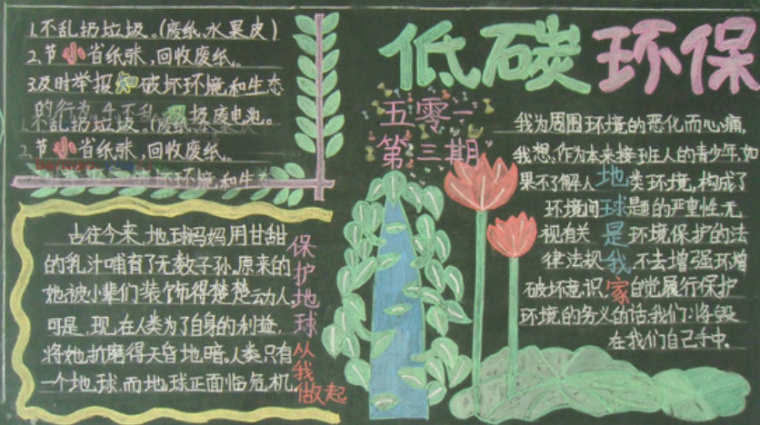 1.不乱扔垃圾。(废纸、水果皮)
2.节 省纸张,回收废纸。
3.及时举报 破坏环境和生态
的行为。4.不乱 扔废电池。
1.不乱扔垃圾。(废纸、水果
2.节 省纸张,回收废纸。
破坏环境和生态
低碳环保
五零一
第三期
古往今来,地球妈妈用甘甜
的乳汁哺育了无数子孙。原来的
她,被小辈们装饰得楚楚动人,
可是,现在人类为了自身的利益,
将她折磨得天昏地暗。人类只有
一个地球,而地球正面临危机。
保护地球
从我做起
我为周围环境的恶化而心痛,
我想,作为未来接班人的青少年,如
果不了解人 类环境,构成了
环境问 题的严重性,无
视有关 环境保护的法
律法规 ,不去增强环境
破坏意识, 自觉履行保护
环境的务义的话,我们:将毁
在我们自己手中.
地球是我家